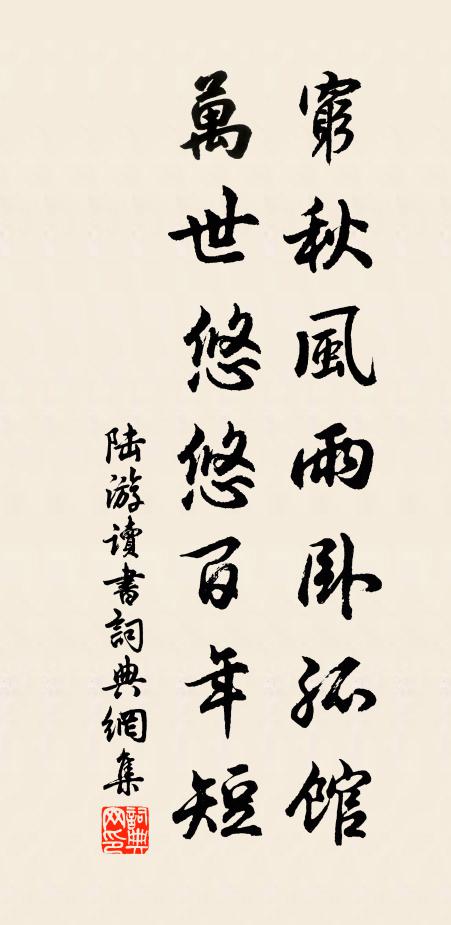 窮秋風雨卧孤館
萬世悠悠百年短
陸游讀書詞典網集
詞典网印